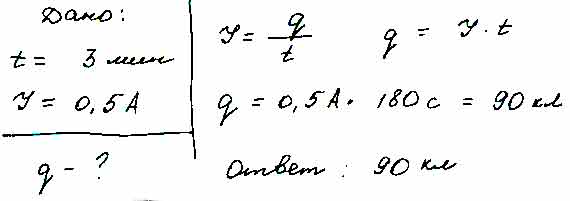 Дано:
t = 3 мин
I = 0,5 А
q - ?
I = q/t q = I · t
q = 0,5 А · 180 с = 90 кл
Ответ: 90 кл